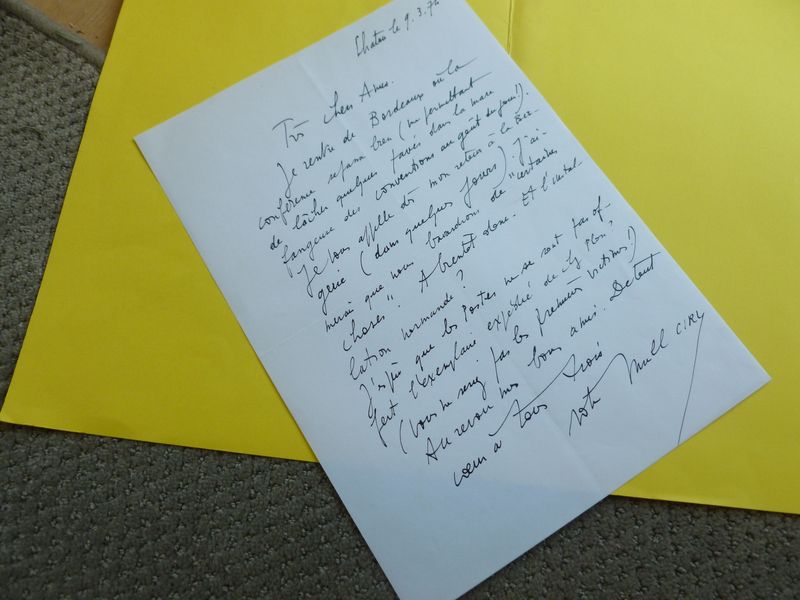 Chatou le 9.3.76
Très chers Amis.
Je rentre de Bordeaux où la
conférence se passa bien (me permettant
de lâcher quelques pavés dans la mare
fangeuse des conventions au goût du jour!).
Je vous appelle dès mon retour à la
génie (dans quelques jours). J'ai-
merais que nous bavardions de "certaines
choses". A bientôt donc. Et l'instal-
lation normande?
J'espère que les Postes ne se sont pas of-
fert l'exemplaire expédié de chez Plon,
(vous ne seriez pas les premières victimes!)
Au revoir mes bons amis. De tout
coeur à tous trois
votre CIRY